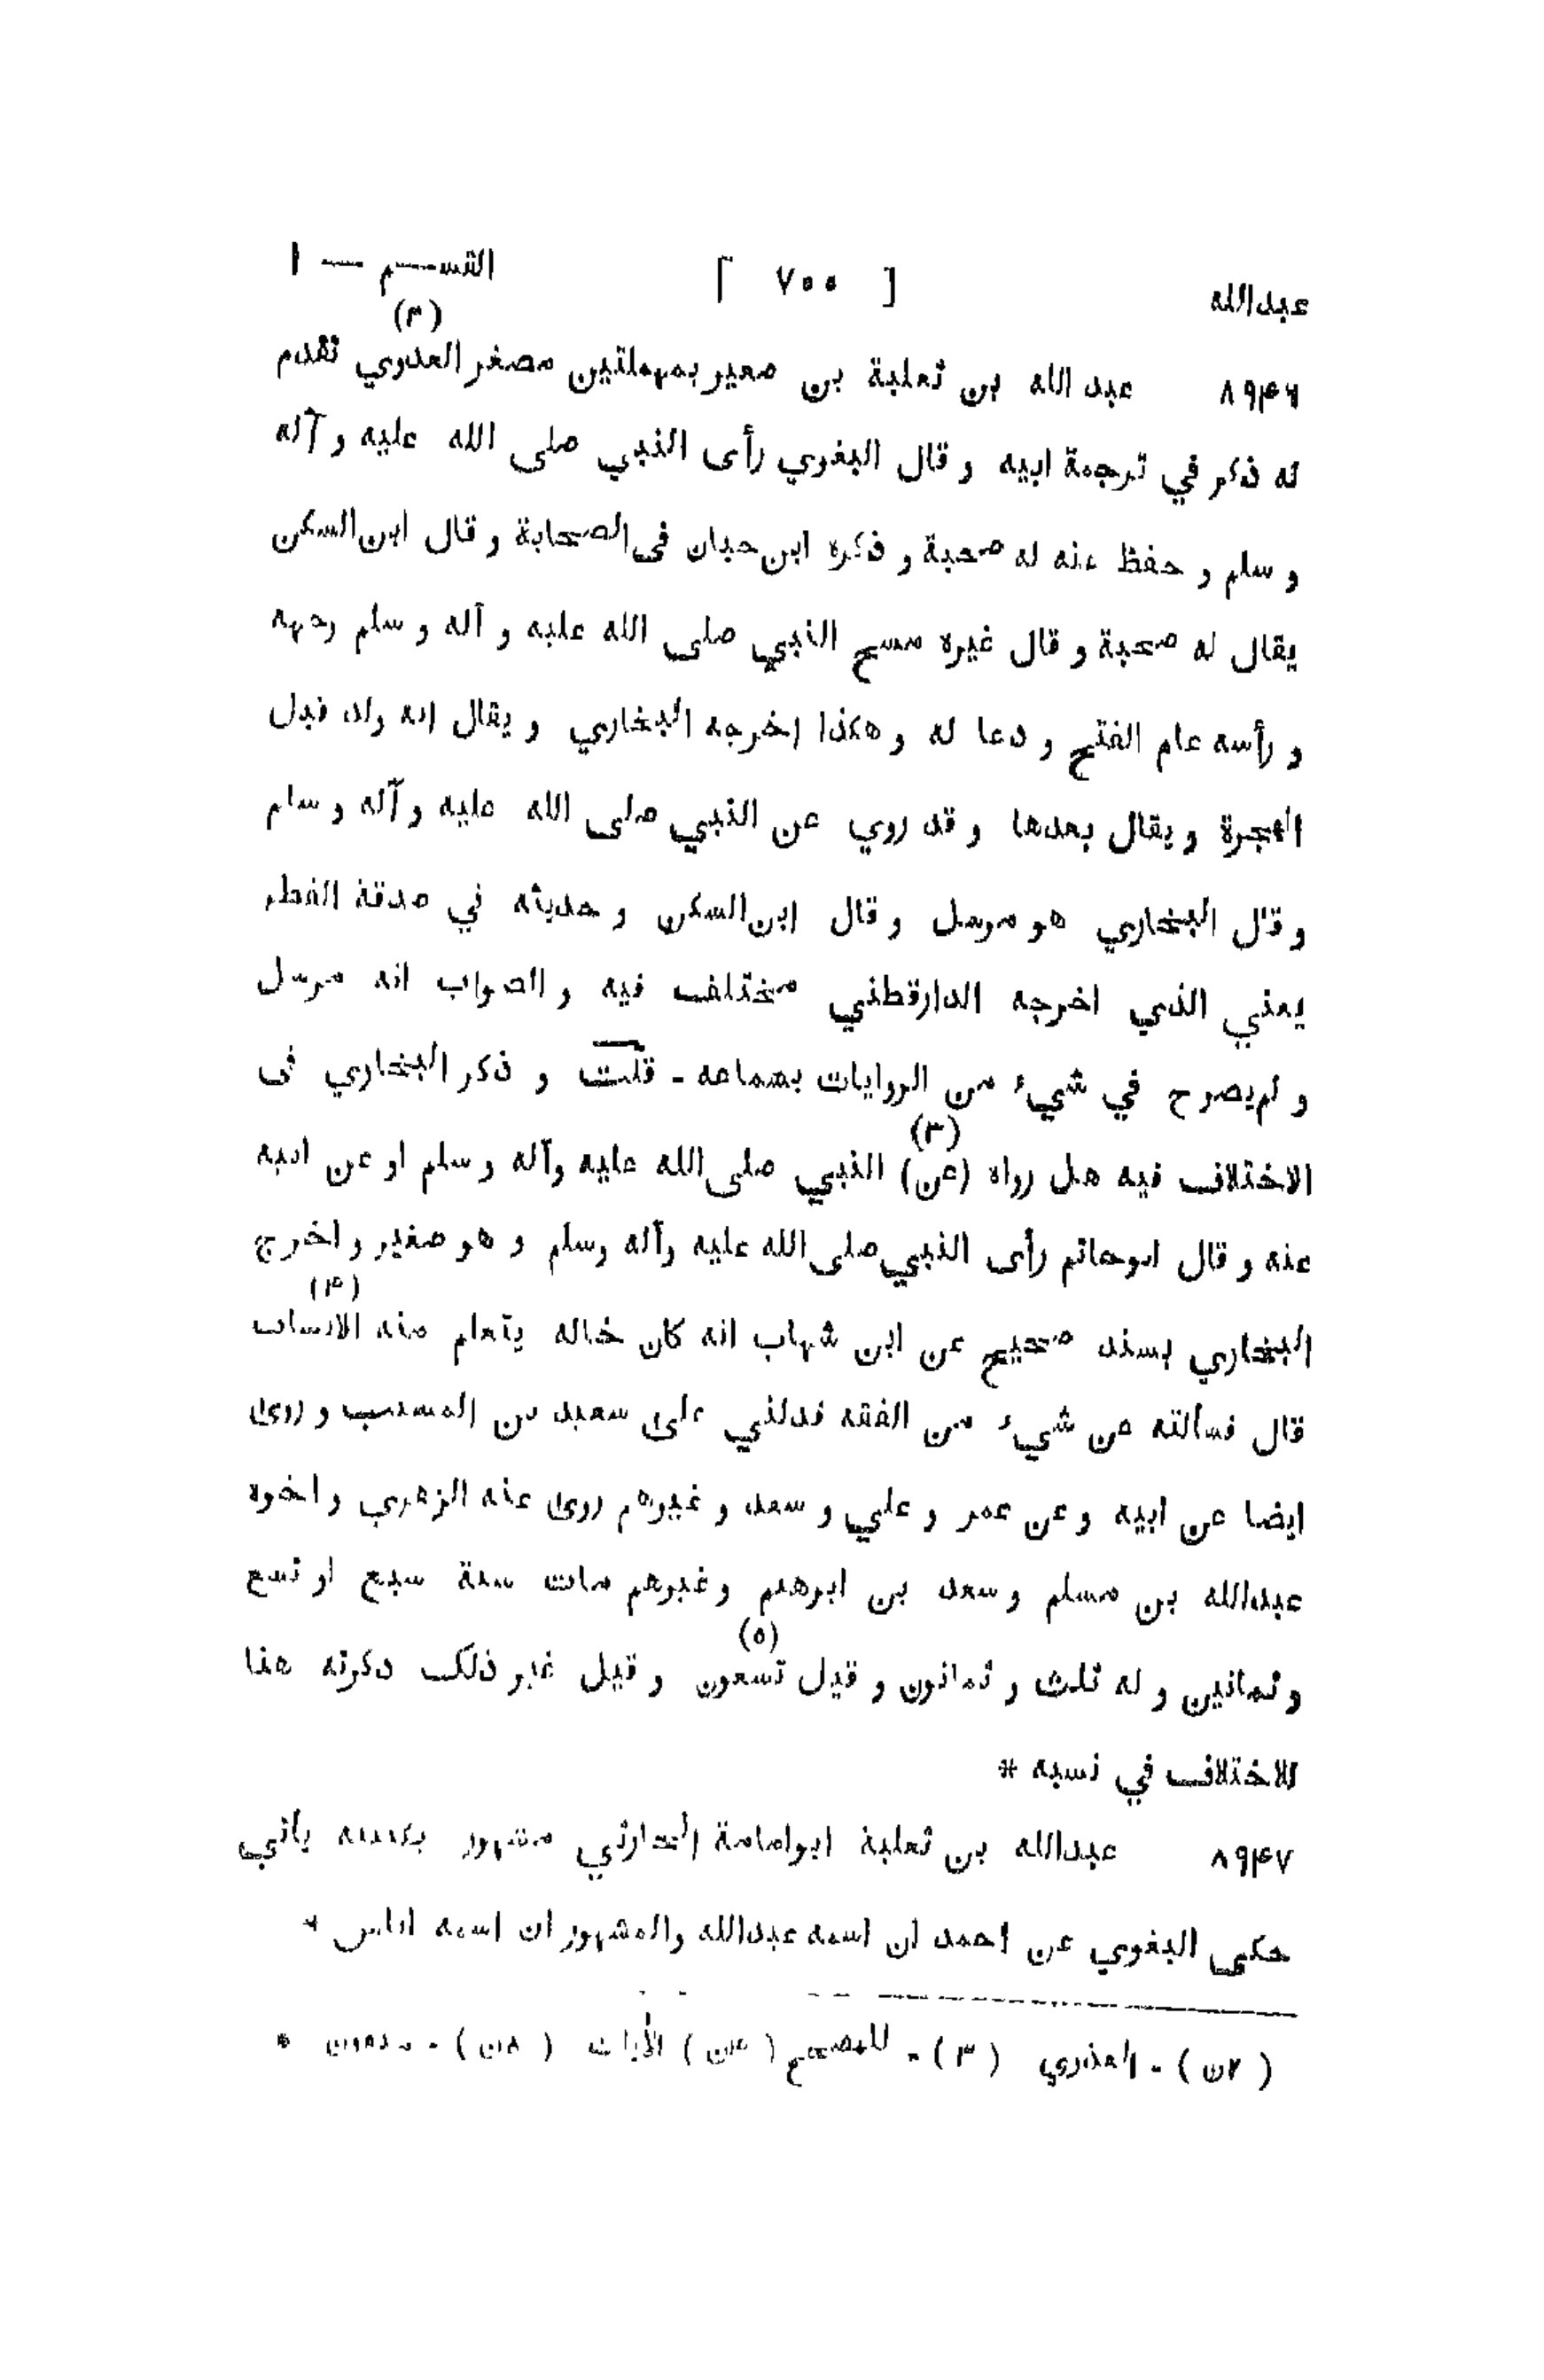 عبدالله [ ٧٠٠ ] القسـم — ١
(٢)
٨٩۴٦ عبد الله بن ثعلبة بن صعير بمهملتين مصغر العدوي تقدم
له ذكر في ترجمة ابيه و قال البغوي رأى النبي صلى الله عليه و آله
و سلم و حفظ عنه له صحبة و ذكره ابن حبان فى الصحابة و قال ابن السكن
يقال له صحبة و قال غيره مسح النبي صلى الله عليه و آله و سلم وجهه
و رأسه عام الفتح و دعا له و هكذا اخرجه البخاري و يقال انه ولد قبل
الهجرة و يقال بعدها و قد روي عن النبي صلى الله عليه و آله و سلم
و قال البخاري هو مرسل و قال ابن السكن و حديثه في صدقة الفطر
يعني الذي اخرجه الدارقطني مختلف فيه و الصواب انه مرسل
و لم يصرح في شيء من الروايات بسماعه - قلت و ذكر البخاري فى
(٣)
الاختلاف فيه هل رواه (عن) النبي صلى الله عليه وآله و سلم او عن ابيه
عنه و قال ابوحاتم رأى النبي صلى الله عليه وآله وسلم و هو صغير و اخرج
(۴)
البخاري بسند صحيح عن ابن شهاب انه كان خاله يتعلم منه الانساب
قال فسألته عن شيء من الفقه فدلني على سعيد بن المسيب و روى
ايضا عن ابيه و عن عمر و علي و سعد و غيرهم روى عنه الزهري و اخوه
عبدالله بن مسلم و سعد بن ابرهيم وغيرهم مات سنة سبع او تسع
(٥)
و ثمانين و له ثلث و ثمانون و قيل تسعون و قيل غير ذلك ذكرته هنا
للاختلاف في نسبه *
٨٩۴٧ عبدالله بن ثعلبة ابوامامة الحارثي مشهور بكنيته يأتي
حكى البغوي عن احمد ان اسمه عبدالله والمشهور ان اسمه اياس *
( ٢ن ) - العذري ( ٣ ) - للمصحح ( ۴ن )